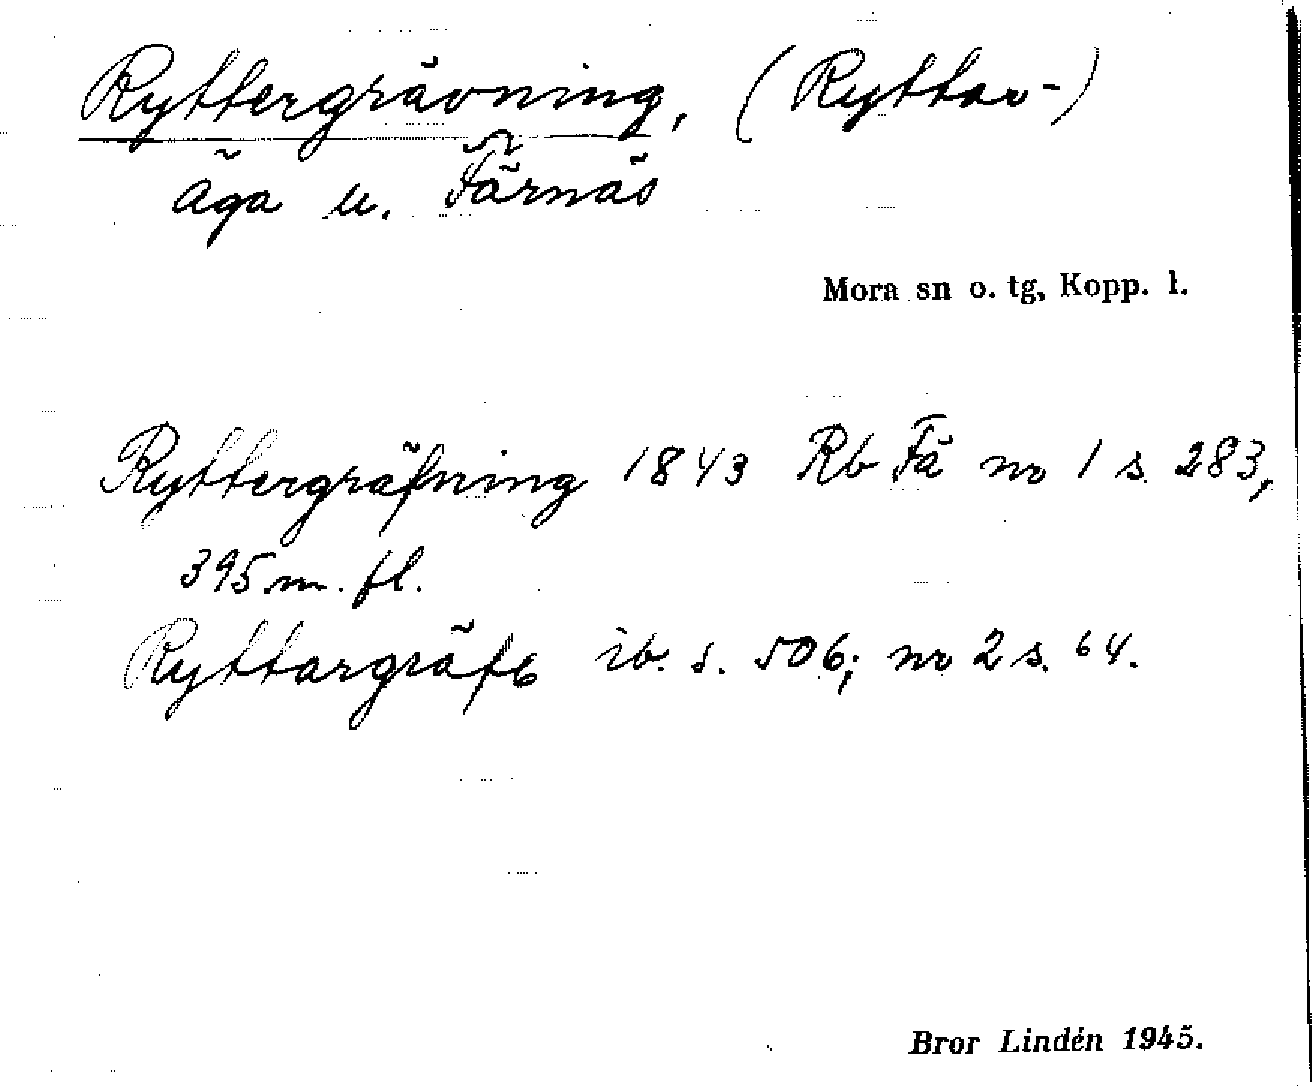 Ryttergrävning, (Ryttar-)
äga u. Färnäs
Mora sn o. tg, Kopp. l.
Ryttergräfning 1843 Rb Fä nr 1 s. 283,
395 m. fl.
Ryttargräfs ib. s. 506; nr 2 s. 64.
Bror Lindén 1945.